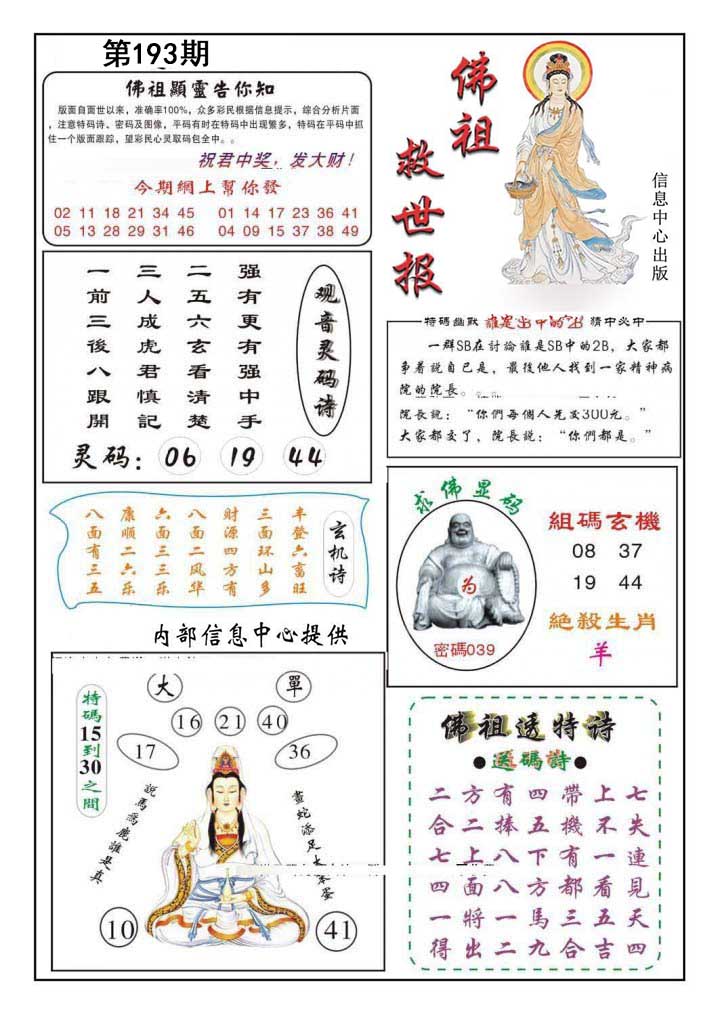 第193期
佛祖顯靈告你知
版面自面世以来，准确率100%，众多彩民根据信息提示，综合分析片面
，注意特码诗、密码及图像，平码有时在特码中出现繁多，特码在平码中抓
住一个版面跟踪，望彩民心灵取码包全中。。
祝君中奖，发大财！
今期網上幫你發
02 11 18 21 34 45 01 14 17 23 36 41
05 13 28 29 31 46 04 09 15 37 38 49
佛祖
救世报
信息中心出版
观音灵码诗
强有更有强中手
二五六玄看清楚
三人成虎君慎記
一前三後八跟開
灵码：06 19 44
特碼幽默 誰是出中的2B 猜中必中
一群SB在討論誰是SB中的2B，大家都
爭着說自己是，最後他人找到一家精神病
院的院长。。。
院長説：“你們每個人先交300元。”
大家都交了，院長説：“你們都是。”
玄机诗
丰登六畜旺
三面环山多
财源四方有
八面二风华
六面三三乐
康顺二六乐
八面有三五
求佛显码
为
密碼039
組碼玄機
08 37
19 44
絕殺生肖
羊
内部信息中心提供
特碼15到30之間
大 單
16 21 40
17 36
説馬爲鹿誰是真
畫蛇添足大蛋
10 41
佛祖透特诗
●送碼詩●
二方有四帶上七
合二捧五機不失
七上八下有一連
四面八方都看見
一將一馬三五天
得出二九合吉四